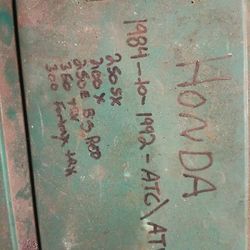 HONDA
1984-to-1992-ATG\AT
250 SX
200 X
250E BIG RED
350 TRX
300 Fourtrax 4x4